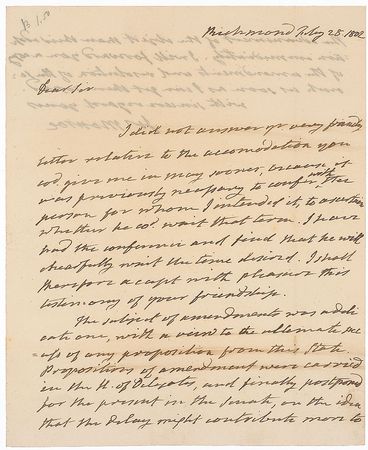 Richmond Feby 25. 1802
Dear Sir
I did not answer yr. very friendly
letter relative to the accomodation you
cod. give me in may sooner, because it
was previously necessary to confer with the
person for whom I intended it, to ascertain
whether he cod. wait that term. I have
had the conference and find that he will
chearfully wait the time desired. I shall
therefore accept with pleasure this
testimony of your friendship.
The subject of amendments was a deli
cate one, with a view to the ultimate suc
cess of any proposition from this State.
Propositions of amendment were carried
in the H. of Delegates, and finally postponed
for the present in the Senate, on the idea
that the delay might contribute more to